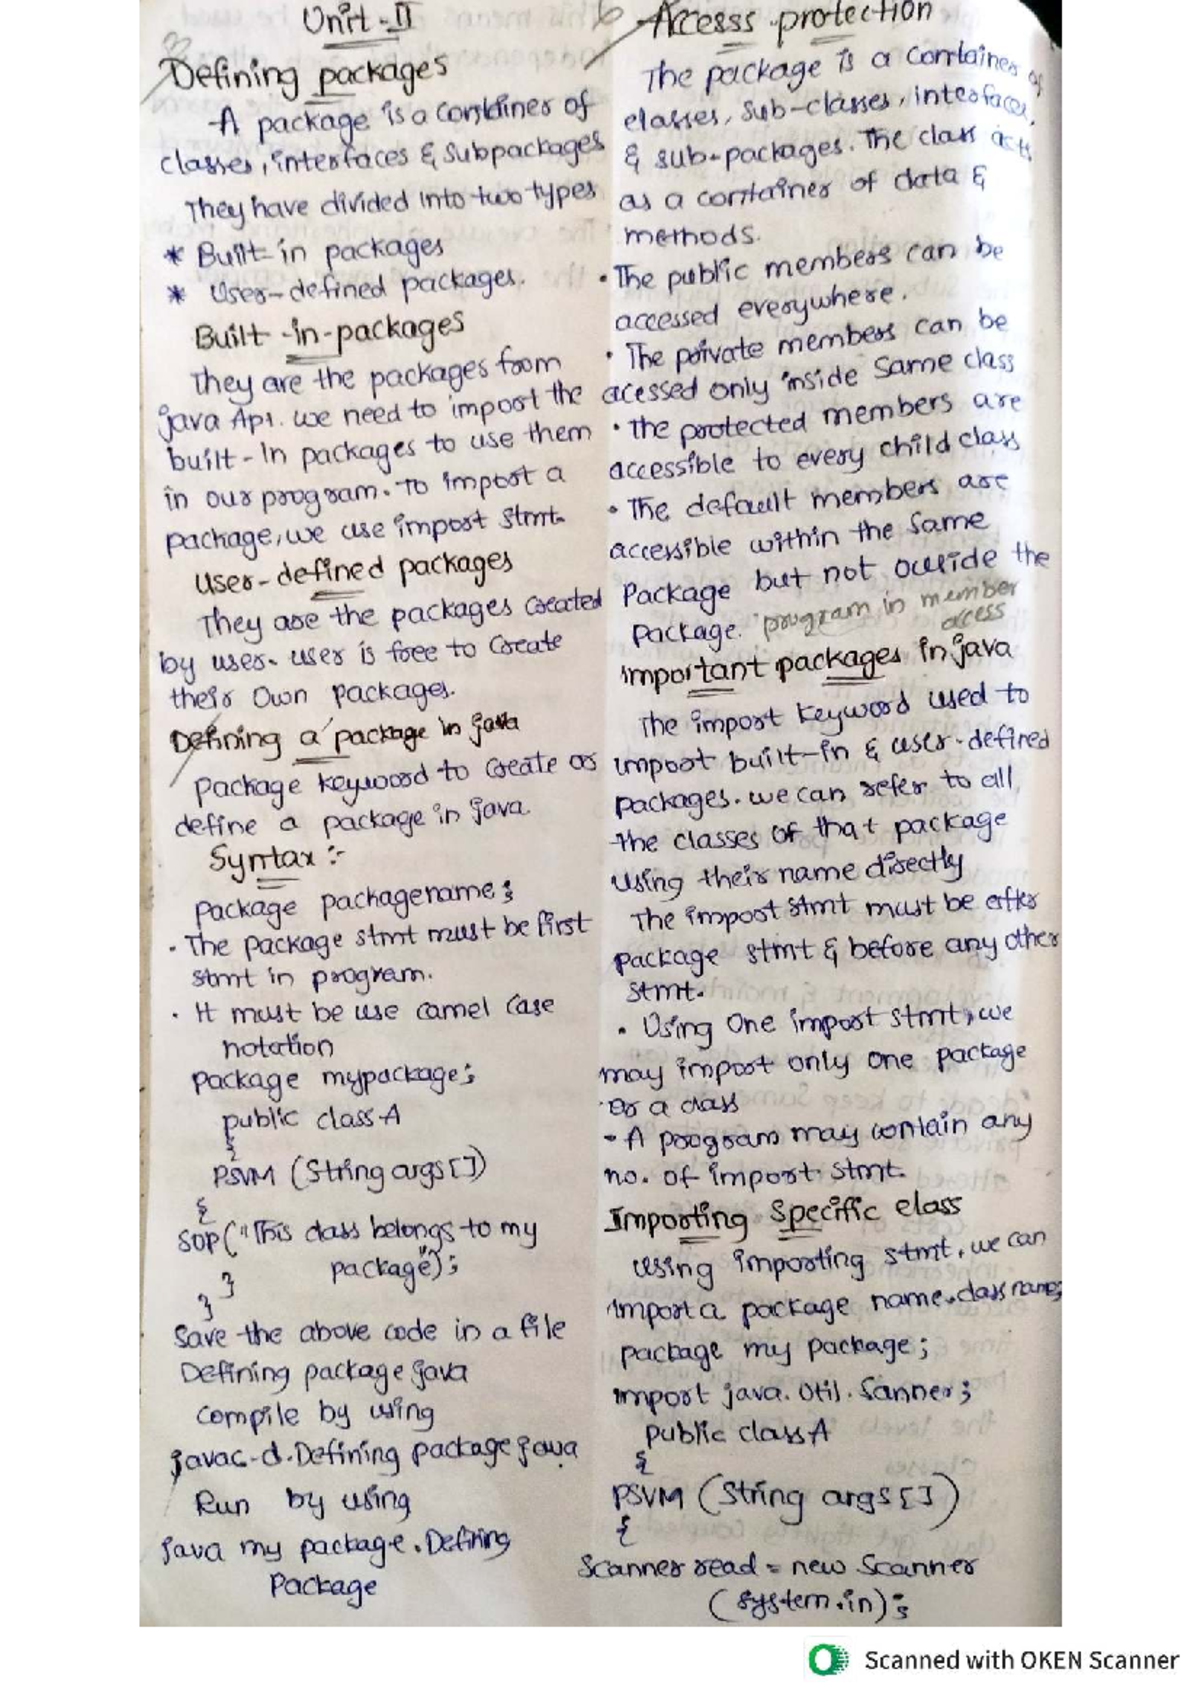 Unit-II
Defining packages
A package is a container of
classes, interfaces & Subpackages
They have divided into two types
* Built in packages
* User-defined packages.
Built-in-packages
They are the packages from
java Api. we need to import the
built-In packages to use them
in our program. To import a
package, we use import stmt.
User-defined packages
They are the packages created
by user. user is free to create
their own packages.
Defining a package in java
package keyword to create or
define a package in java.
Syntax :-
package packagename;
. The package stmt must be first
stmt in program.
. It must be use camel case
notation
package mypackage;
public class A
{
PSVM (String args[])
{
SOP("This class belongs to my
package");
}
}
Save the above code in a file
Defining package java
compile by using
javac-d.Defining package java
Run by using
java my package.Defining
Package
Accesss protection
The package is a container of
classes, sub-classes, interfaces,
& sub-packages. The class acts
as a container of data &
methods.
. The public members can be
accessed everywhere.
. The private members can be
acessed only inside same class
. the protected members are
accessible to every child class
. The default members are
accessible within the same
Package but not outside the
package. program in member
access
important packages in java
The import keyword used to
import built-in & user-defined
packages. we can refer to all
the classes of that package
using their name directly
The import stmt must be after
package stmt & before any other
stmt.
. Using one import stmt, we
may import only one package
or a class
- A program may contain any
no. of import stmt.
Importing Specific class
using importing stmt, we can
import a package name.class name;
package my package;
import java. Util. Sanner;
public class A
{
PSVM (String args[])
{
Scanner read = new Scanner
(system.in);
Scanned with OKEN Scanner